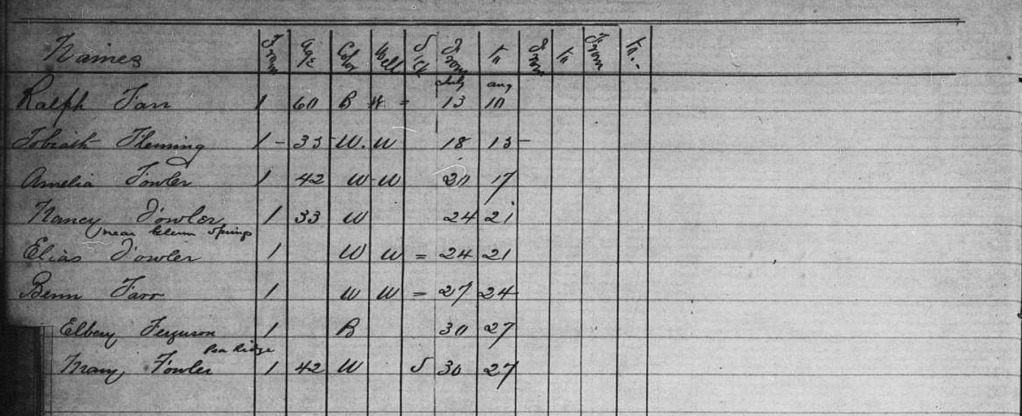 Names From Age Color Well Sick From To From To From To.-
July Aug
Ralph Farr 1 60 B W = 13 10
Fleming 1 - 35 - W. W 18 15 -
Amelia Fowler 1 42 W - W 20 17
Nancy Fowler 1 33 W 24 21
near Glenn Springs
Elias Fowler 1 W W = 24 21
Benn Farr 1 W W = 27 24
Elbery Ferguson 1 B 30 27
Pea Ridge
Fowler 1 42 W S 30 27